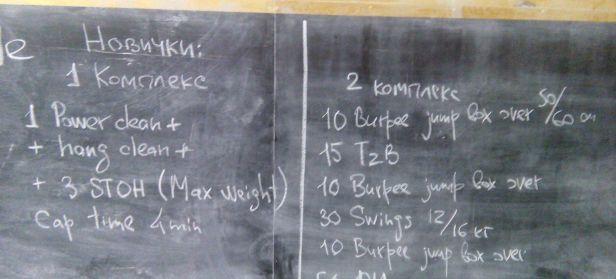 Новички:
1 Комплекс
1 Power clean +
+ hang clean +
+ 3 STOH (Max weight)
Cap time 4 min
2 комплекс
10 Burpee jump box over 50/60 см
15 T2B
10 Burpee jump box over
30 Swings 12/16 кг
10 Burpee jump box over